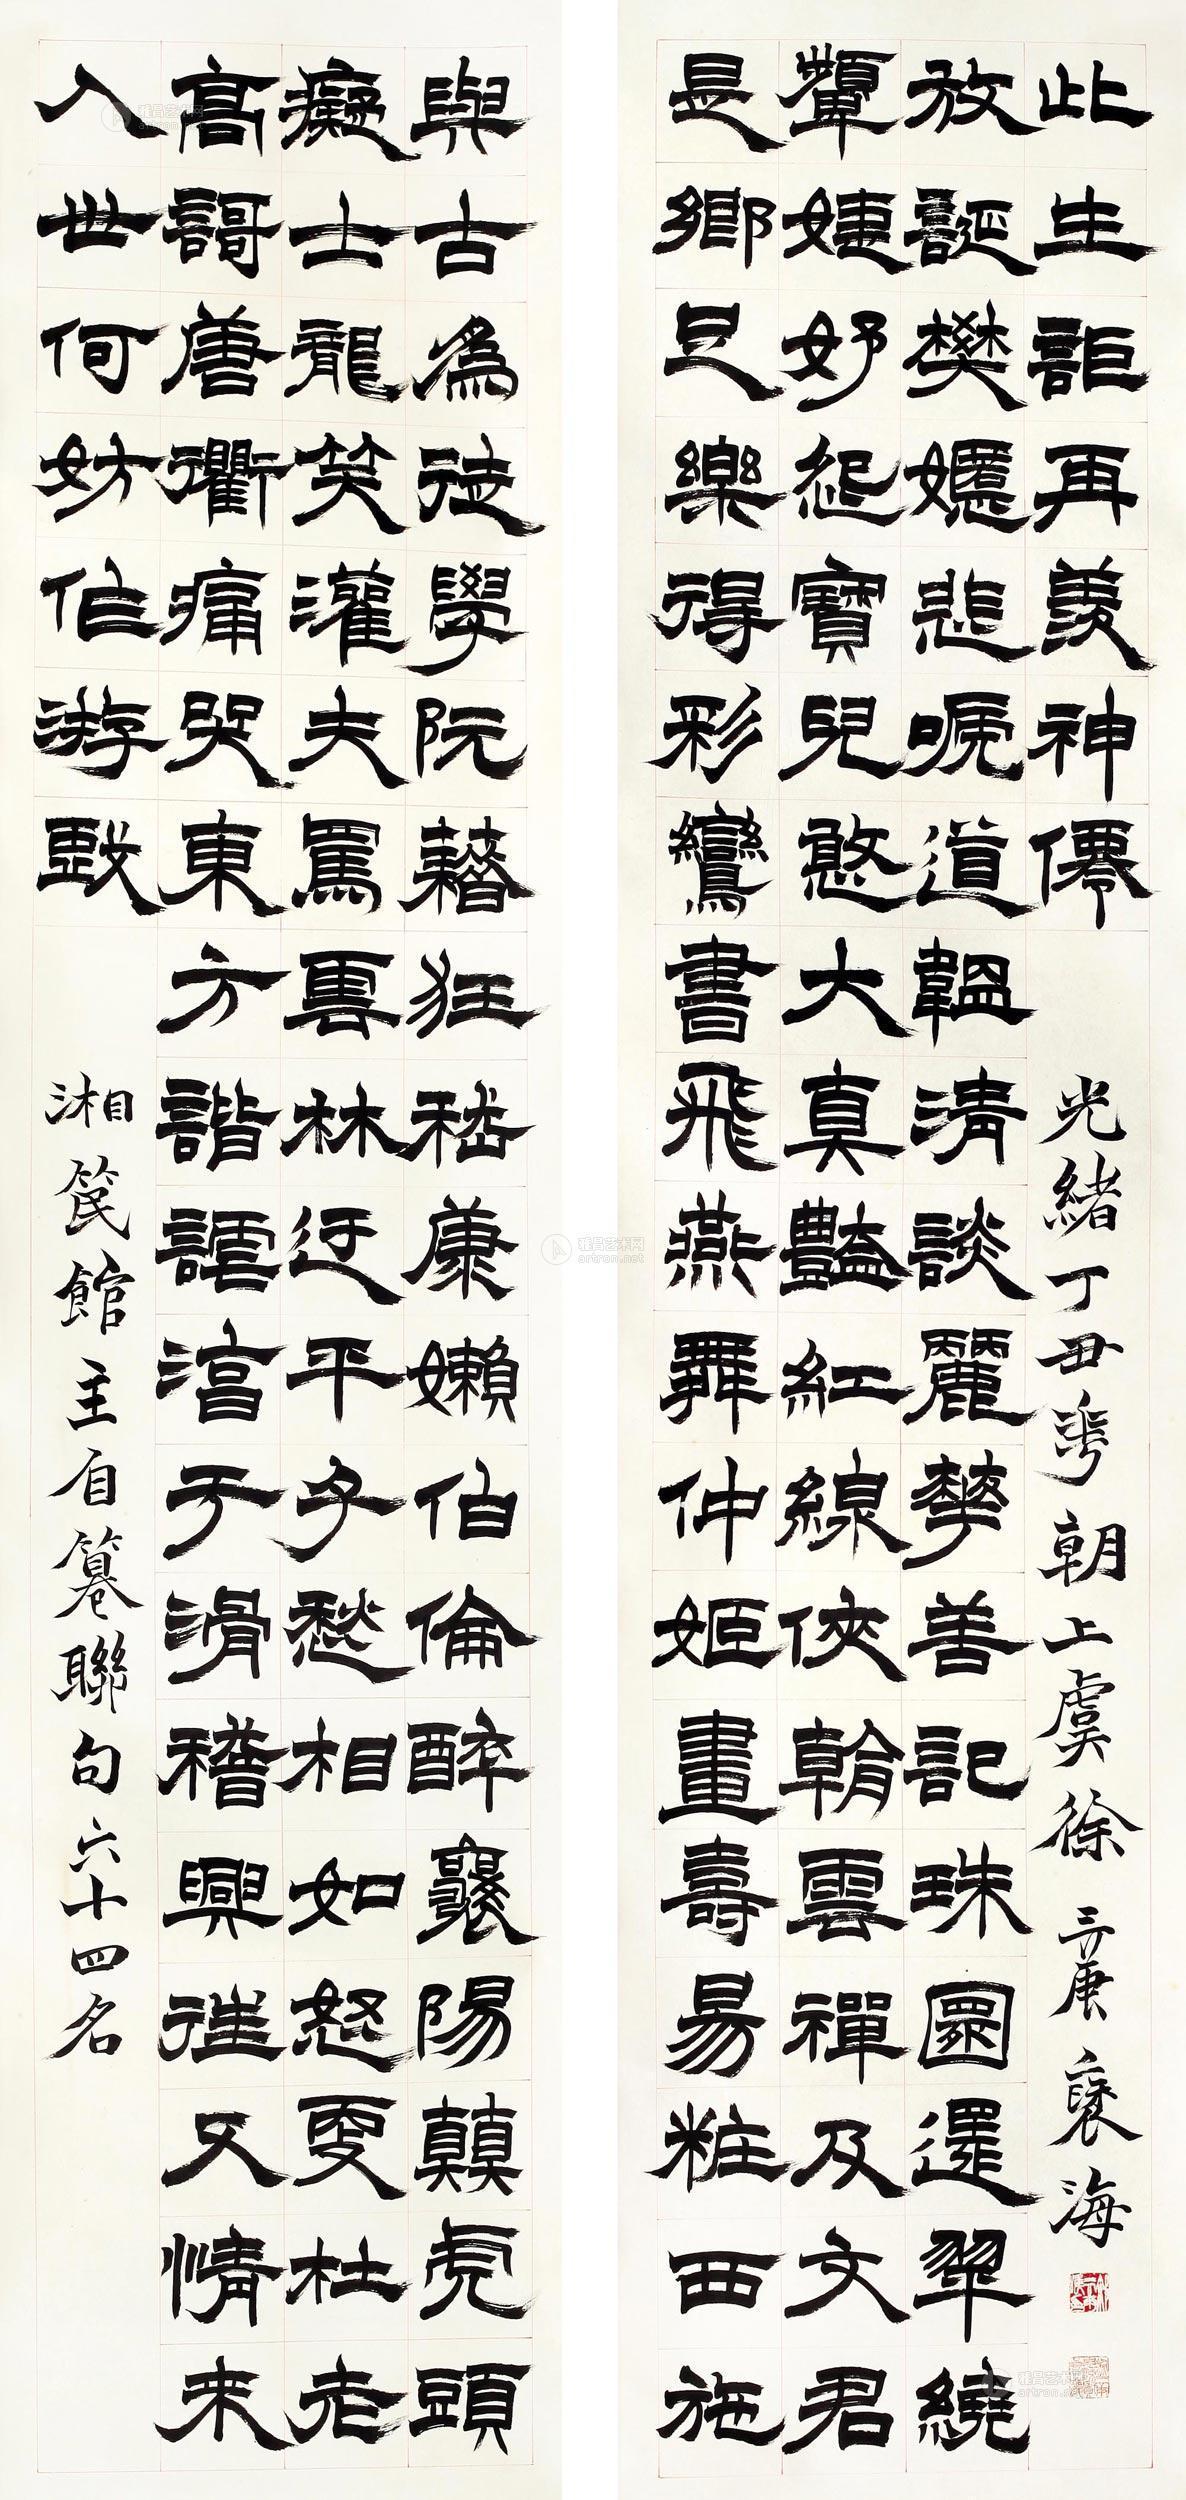 與古為徒學阮藉狂嵇康嬾伯倫醉襄陽顛虎頭
癡士龍笑灌夫罵雲林迂平子愁相如怒更杜老
高謌唐衢痛哭東方諧謔淳于滑稽興往又情來
入世何妨作游戲
湘筤館主自纂聯句六十四名
是鄉足樂得彩鸞書飛燕舞仲姬畫壽昜粧西施
顰婕妤怨寶兒憨大真豔紅線俠朝雲禪及文君
放誕樊嬺悲嘅道韞清談麗華善記珠圍還翠繞
此生詎再羨神僊
光緒丁丑華朝上虞徐三庚褎海